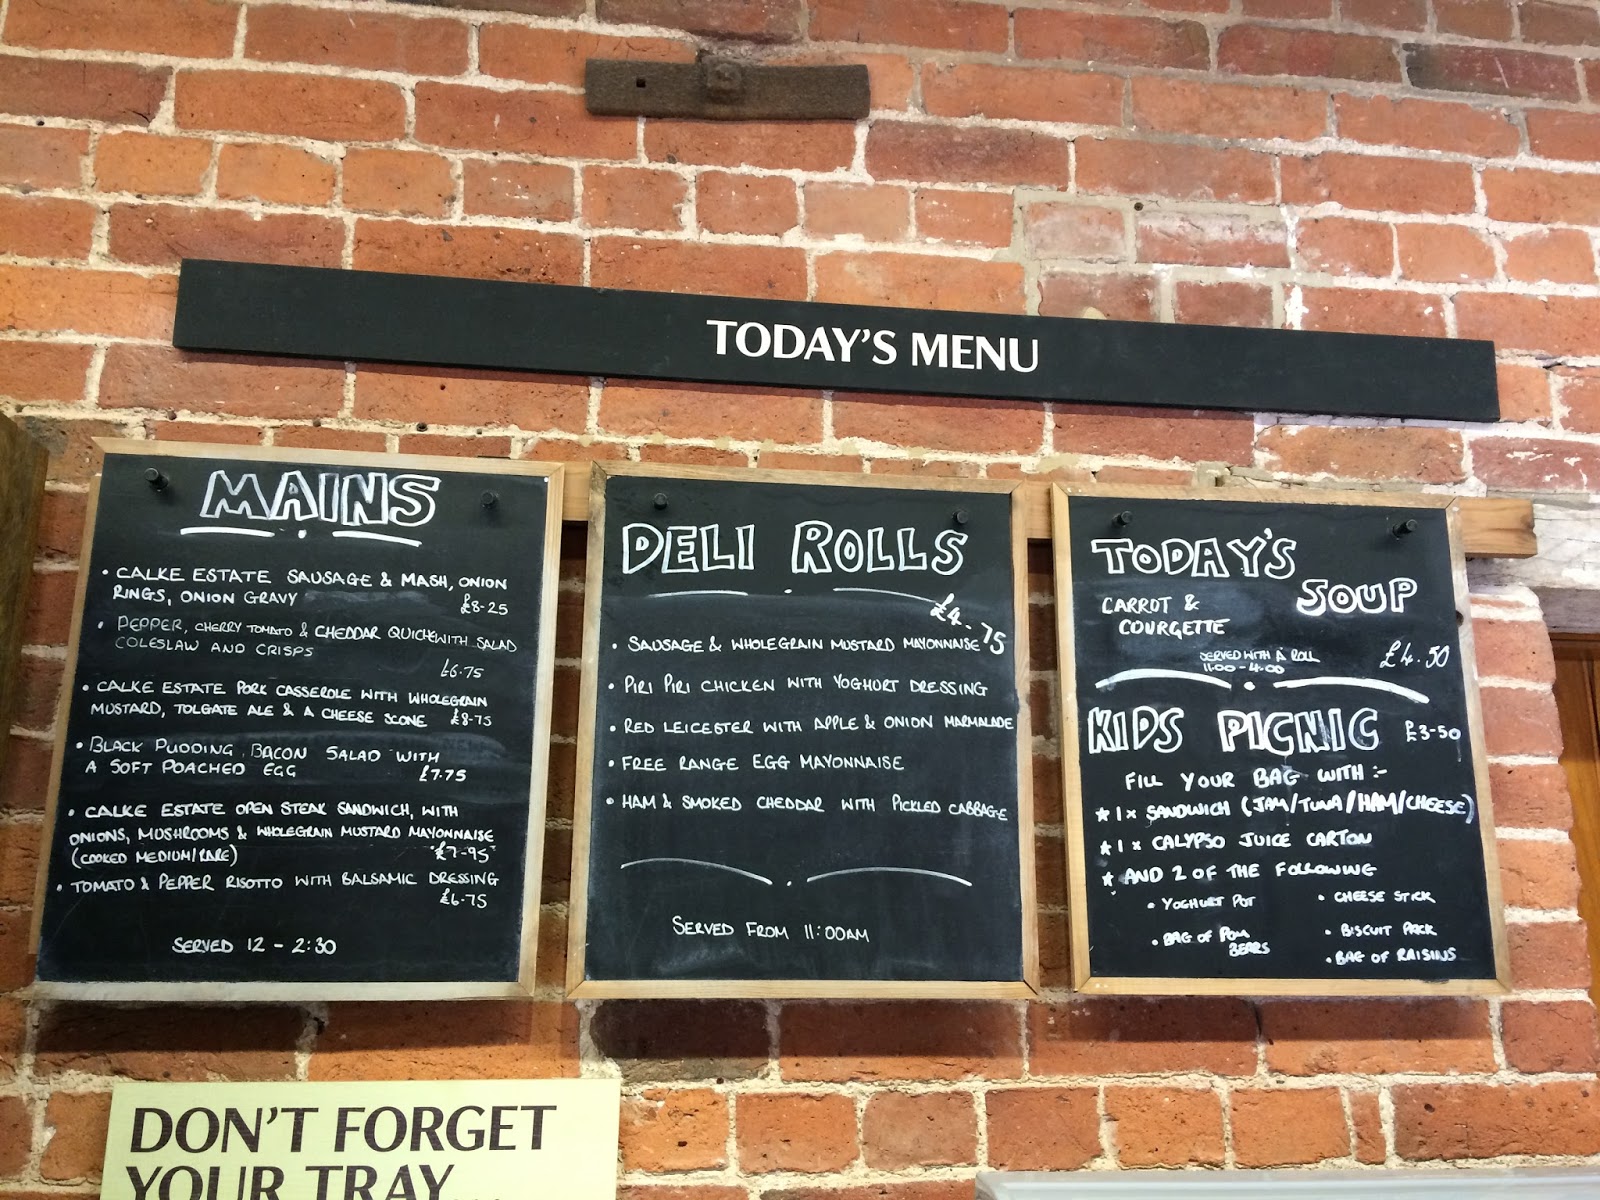 TODAY'S MENU
MAINS
• CALKE ESTATE SAUSAGE & MASH, ONION
RINGS, ONION GRAVY £8-25
• PEPPER, CHERRY TOMATO & CHEDDAR QUICHE WITH SALAD
COLESLAW AND CRISPS
£6.75
• CALKE ESTATE PORK CASSEROLE WITH WHOLEGRAIN
MUSTARD, TOLGATE ALE & A CHEESE SCONE £8-75
• BLACK PUDDING, BACON SALAD WITH
A SOFT POACHED EGG £7.75
• CALKE ESTATE OPEN STEAK SANDWICH, WITH
ONIONS, MUSHROOMS & WHOLEGRAIN MUSTARD MAYONNAISE
(COOKED MEDIUM/RARE) £7-95
• TOMATO & PEPPER RISOTTO WITH BALSAMIC DRESSING
£6-75
SERVED 12 - 2:30
DELI ROLLS
£4-75
• SAUSAGE & WHOLEGRAIN MUSTARD MAYONNAISE
• PIRI PIRI CHICKEN WITH YOGHURT DRESSING
• RED LEICESTER WITH APPLE & ONION MARMALADE
• FREE RANGE EGG MAYONNAISE
• HAM & SMOKED CHEDDAR WITH PICKLED CABBAGE
SERVED FROM 11:00AM
TODAY'S
SOUP
CARROT &
COURGETTE
SERVED WITH A ROLL
11-00 - 4.00 £4.50
KIDS PICNIC £3-50
FILL YOUR BAG WITH :-
★ 1 x SANDWICH (JAM/TUNA/HAM/CHEESE)
★ 1 x CALYPSO JUICE CARTON
★ AND 2 OF THE FOLLOWING
• YOGHURT POT
• BAG OF POM
BEARS
• CHEESE STICK
• BISCUIT PACK
• BAG OF RAISINS
DON'T FORGET
YOUR TRAY...